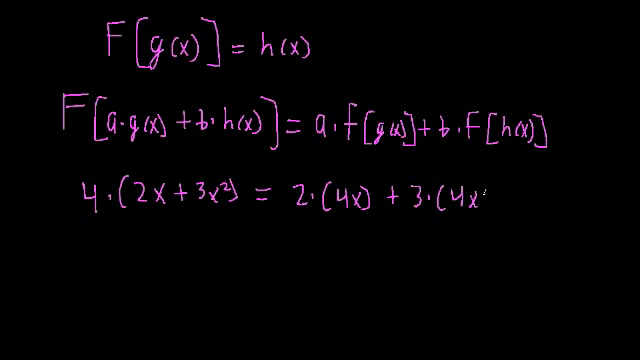 F[g(x)] = h(x)
F[a·g(x) + b·h(x)] = a·F[g(x)] + b·F[h(x)]
4·(2x + 3x²) = 2·(4x) + 3·(4x